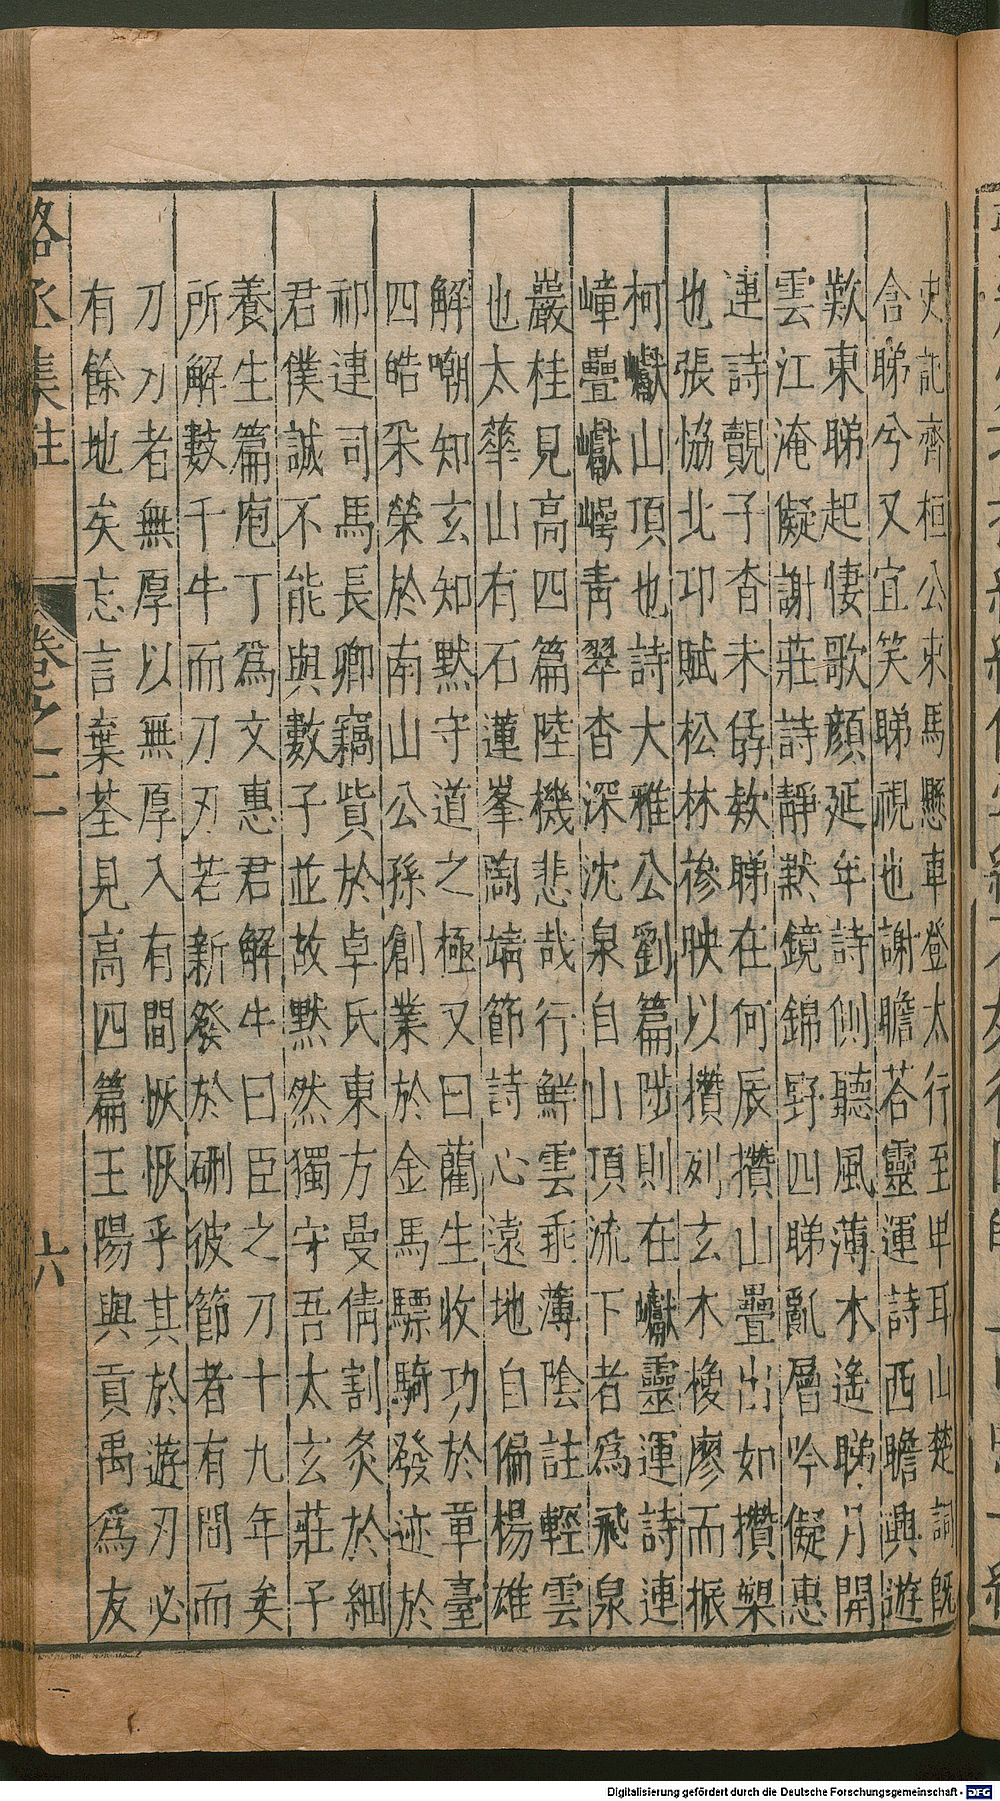 史記齊桓公束馬懸車登太行至卑耳山楚詞旣
含睇兮又宜笑睇視也謝瞻荅靈運詩西瞻興遊
歎東睇起悽歌顔延年詩側聽風薄木遙睇月開
雲江淹儗謝莊詩靜黙鏡錦野四睇亂層吟儗惠
連詩覿子杳未僝欸睇在何辰攢山疊出如攢槊
也張協北邙賦松林摻映以攢列玄木㯶廖而振
柯巘山頂也詩大雅公劉篇陟則在巘靈運詩連
嶂疊巘崿靑翠杳深沈泉自山頂流下者爲飛泉
巖桂見高四篇陸機悲哉行鮮雲乖薄陰註輕雲
也太華山有石蓮峯陶靖節詩心遠地自偏楊雄
解嘲知玄知默守道之極又曰藺生收功於章臺
四皓采榮於南山公孫創業於金馬驃騎發迹於
祁連司馬長卿竊貲於卓氏東方曼倩割炙於細
君僕誠不能與數子並故默然獨守吾太玄莊子
養生篇庖丁爲文惠君解牛曰臣之刀十九年矣
所解數千牛而刀刃若新發於硎彼節者有間而
刀刃者無厚以無厚入有間恢恢乎其於遊刃必
有餘地矣忘言棄荃見高四篇王陽與貢禹爲友
駱丞集註 卷之二 六
Digitalisierung gefördert durch die Deutsche Forschungsgemeinschaft - DFG